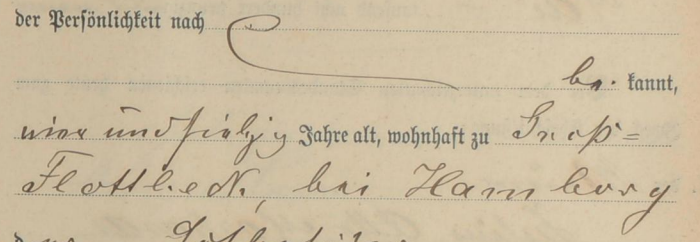 der Persönlichkeit nach
be. kannt,
vier und siebzig Jahre alt, wohnhaft zu Groß=
Flottbeck, bei Hamburg